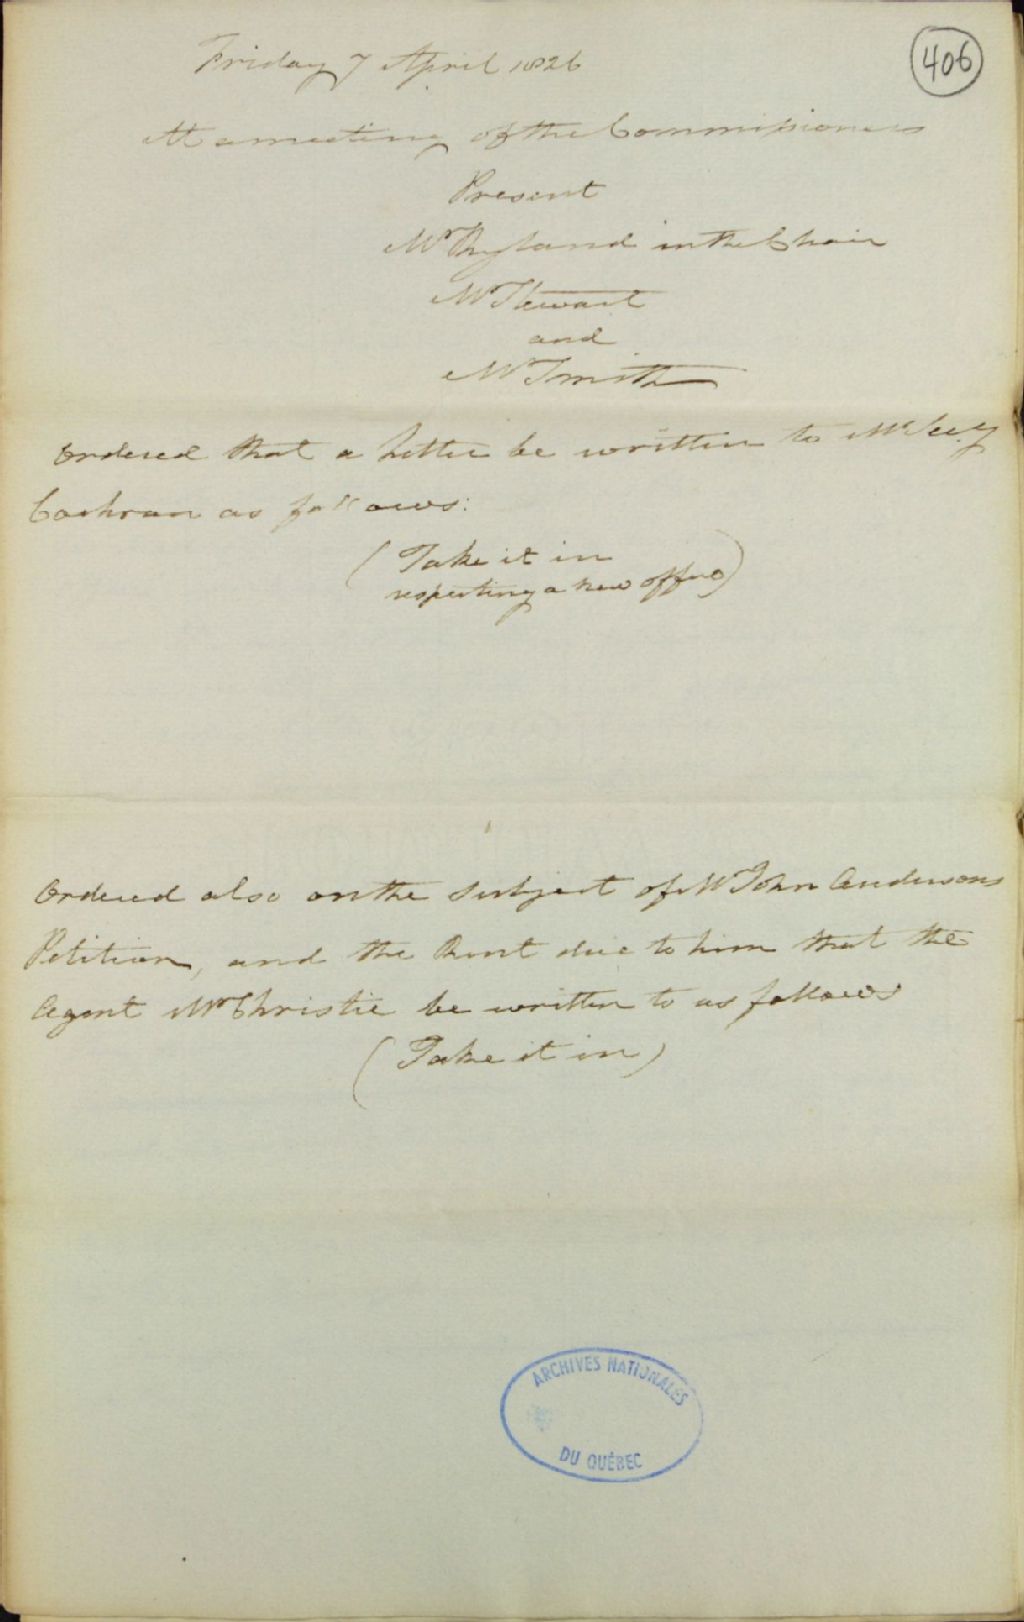 406
Friday 7 April 1826
At a meeting of the Commissioners
Present
Mr Ryland in the Chair
Mr Stewart
and
Mr Smith
Ordered that a letter be written to Mr Secy
Cochran as follows:
(Take it in
respecting a new office)
Ordered also on the subject of Mr John Andersons
Petition, and the Rent due to him that the
Agent Mr Christie be written to as follows
(Take it in)
ARCHIVES NATIONALES
DU QUÉBEC